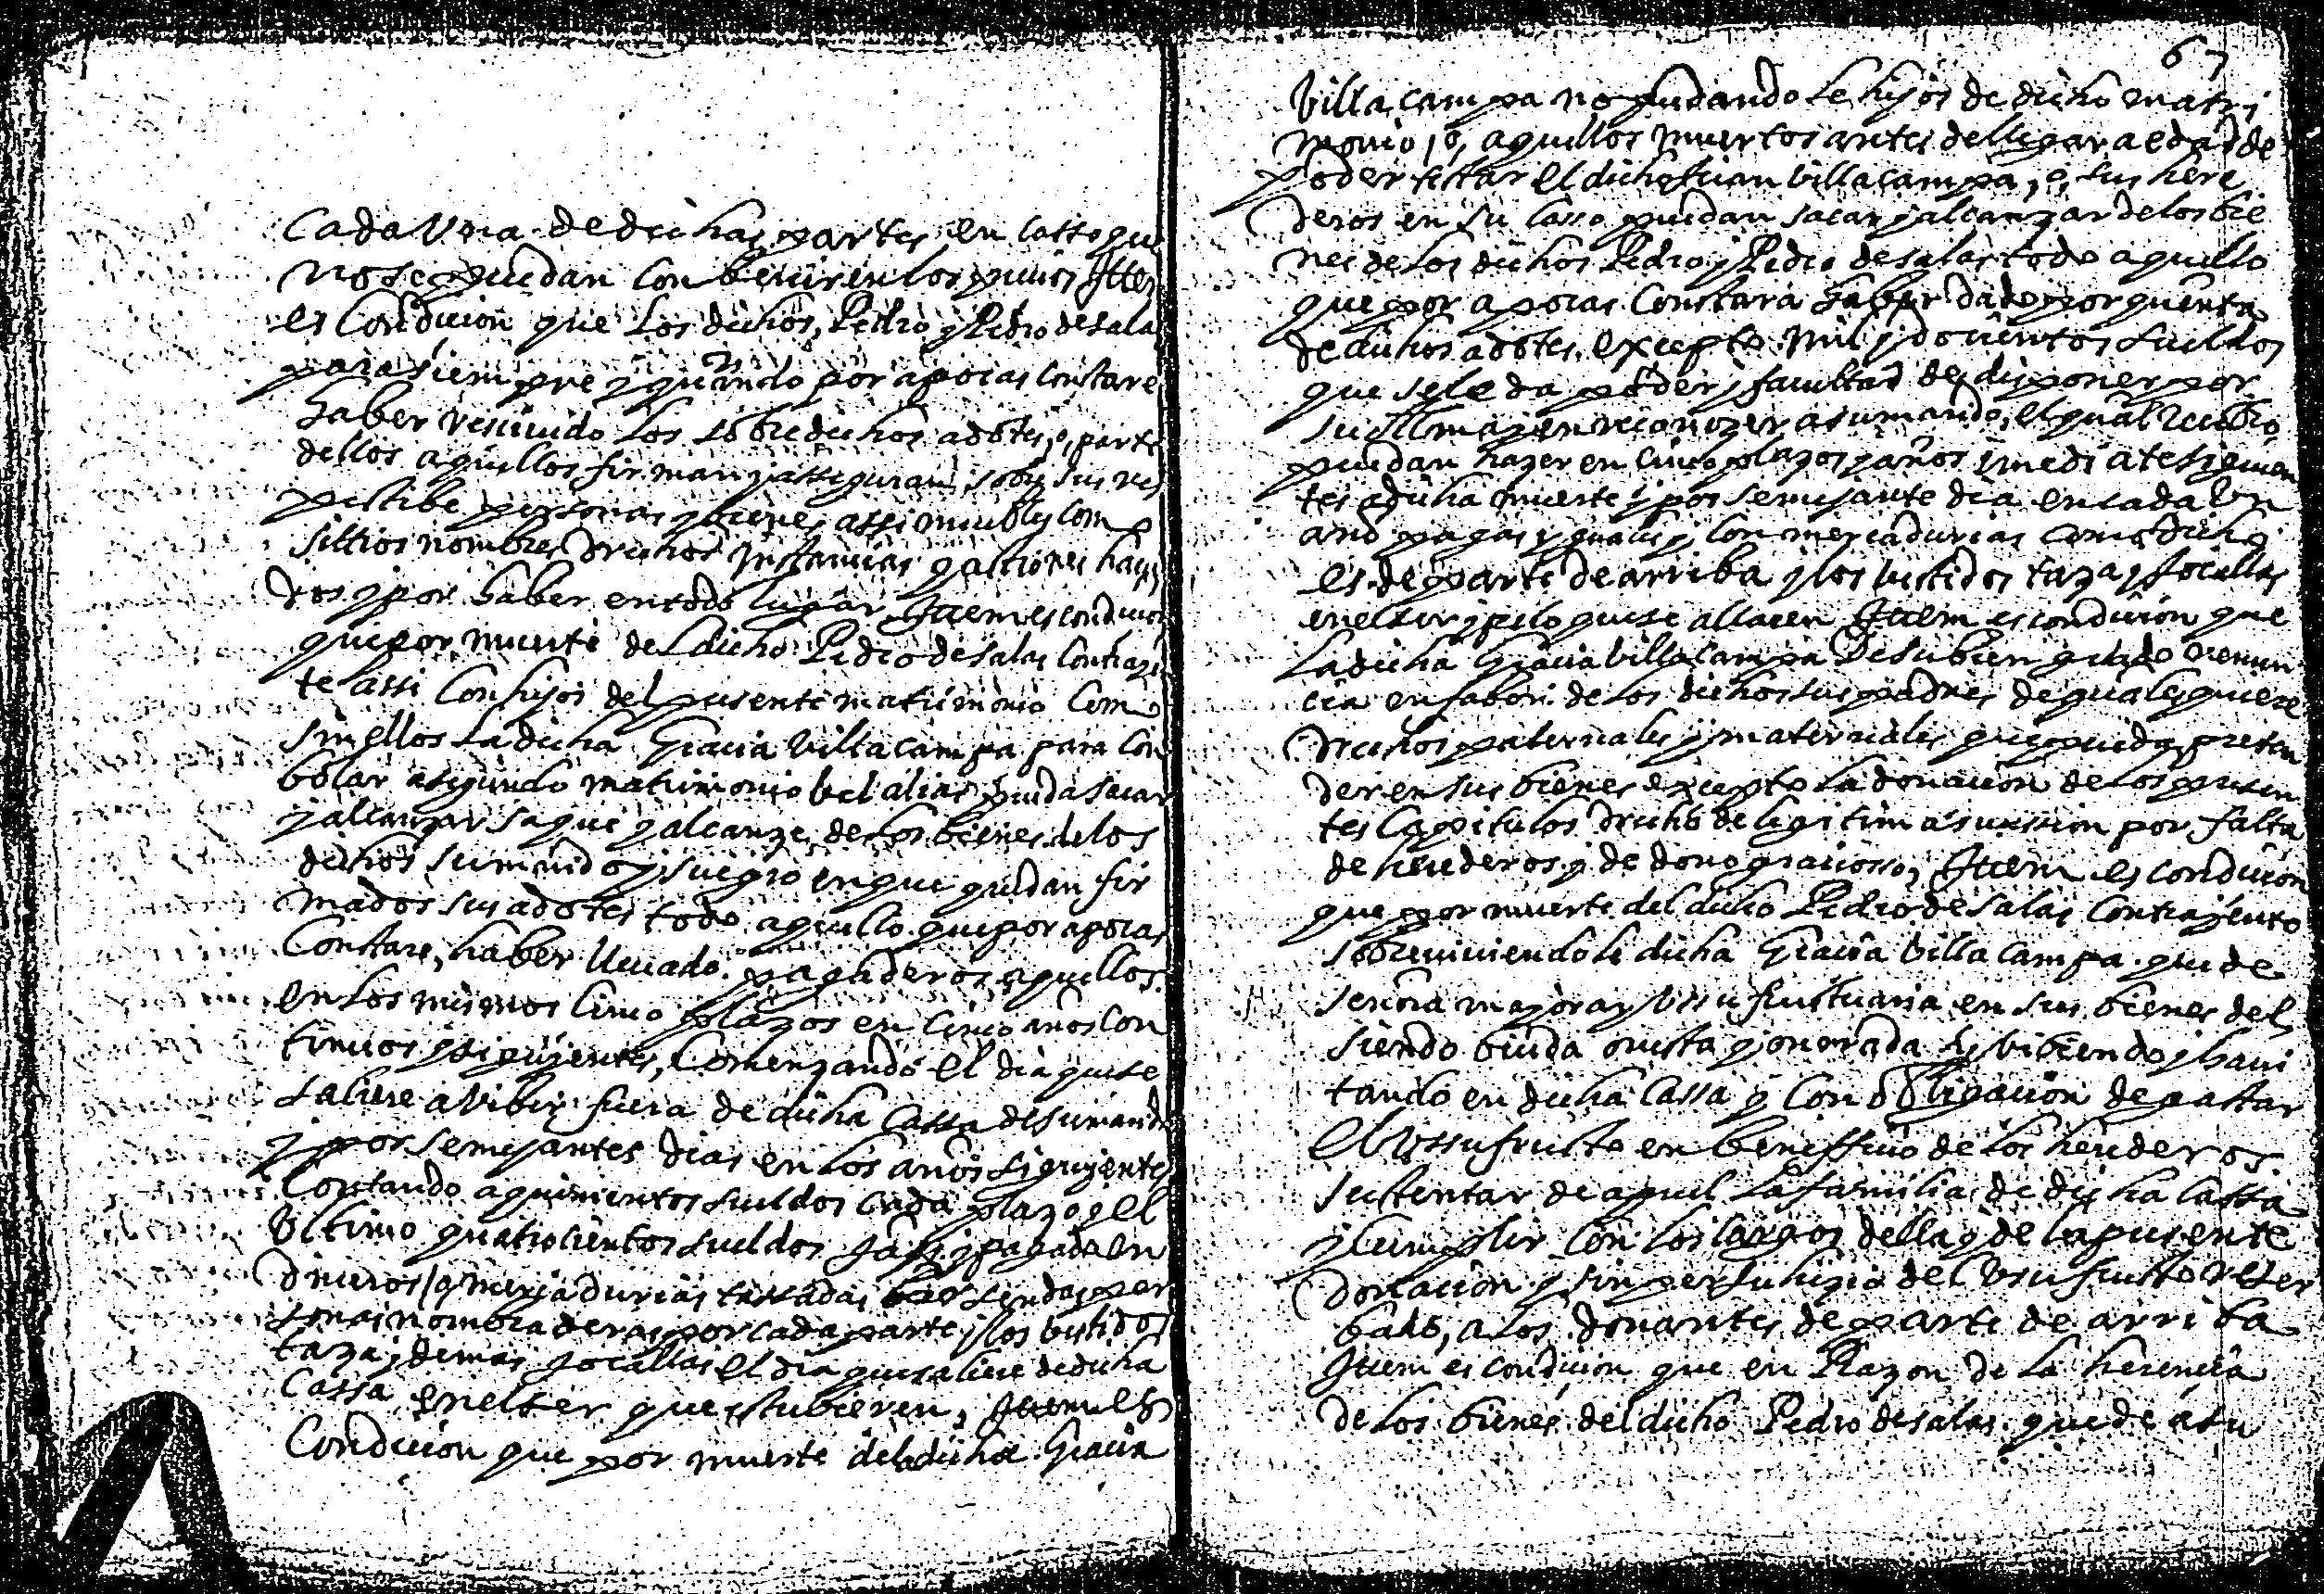 Cada Vna de dichas partes en casso que
no se puedan conbenir en los precios Itten
es Condicion que Los dichos Pedro y Pedro de sala
para siempre y quando por apocas constare
haber resciuido los sobredichos adotes, o, parte
dellos aquellos firman y asseguran sobre sus res
pectibe personas y bienes assi muebles como
sittios nombres drechos instancias y actiones haui
dos y por haber en todo lugar Ittem es condicion
que por muerte del dicho Pedro de salas Contrayen
te assi Con hijos del presente matrimonio Como
sin ellos La dicha Gracia Villacampa para con
bolar a segundo matrimonio vel alias pueda sacar
y alcanzar saque y alcanze de los bienes de los
dichos su marido y suegro en que quedan fir
mados sus adotes todo aquello que por apocas
Constare, haber lleuado. pagaderos aquellos
en los mismos cinco plazos en cinco años con
tinuos y siguientes, Comenzando el dia que se
saliere a vibir fuera de dicha Cassa de su marido
y por semejantes dias en los años siguyentes
Contando a quinientos sueldos cada plazo y el
Vltimo quatrocientos sueldos Jaqs y pagada en
dineros, o, mercadurias tassadas por sendas per
sonas nombraderas por cada parte y los bestidos
taza y demas Jocallas el dia que saliere de dicha
Cassa en el ser que estubieren, Ittem es
Condicion que por muerte de la dicha Gracia
67
Villacampa no quedandole hijos de dicho matri
monio, o, aquellos muertos antes de llegar a edad de
poder testar el dicho Juan Villacampa, o, sus here
deros en su casso puedan sacar y alcanzar de los bie
nes de los dichos Pedro y Pedro de salas todo aquello
que por apocas Constara haber dado por quenta
de dichos adotes, excepto mil y docientos sueldos
que se le da poder y facultad de disponer por
su Alma y en reconozer a su marido, el qual recibo
puedan hazer en cinco plazos y años imediate siguien
tes a dicha muerte y por semejante dia en cada Vn
año pagas yguales y con mercadurias como dicho
es de parte de arriba y los bestidos taza y Jocallas
en el ser y pelo que se allaren Ittem es condicion que
La dicha Gracia Villacampa de su bien grado renun
cia en fabor de los dichos sus padres de qualesquiere
Drechos paternales y maternales que puede preten
der en sus bienes excepto la donacion de los presen
tes Capitulos drecho de legitima sucession por falta
de herederos y de dono graciosso, Ittem es condicion
que por muerte del dicho Pedro de Salas Contrayente
sobreuiuiendole dicha Gracia Villacampa quede
señora mayora y vssufructuaria en sus bienes del
siendo biuda onesta y onorada y vibiendo y haui
tando en dicha Cassa y Con obligacion de gastar
el Vssufructo en beneffiicio de los herederos
sustentar de aquel la familia de dicha Cassa
y Cumplir Con los cargos della y de la presente
donacion y sin perjuhizio del Vsufructo reser
bado, a los donantes de parte de arriba
Ittem es condicion que en Razon de la herencia
de los bienes del dicho Pedro de salas quede a su